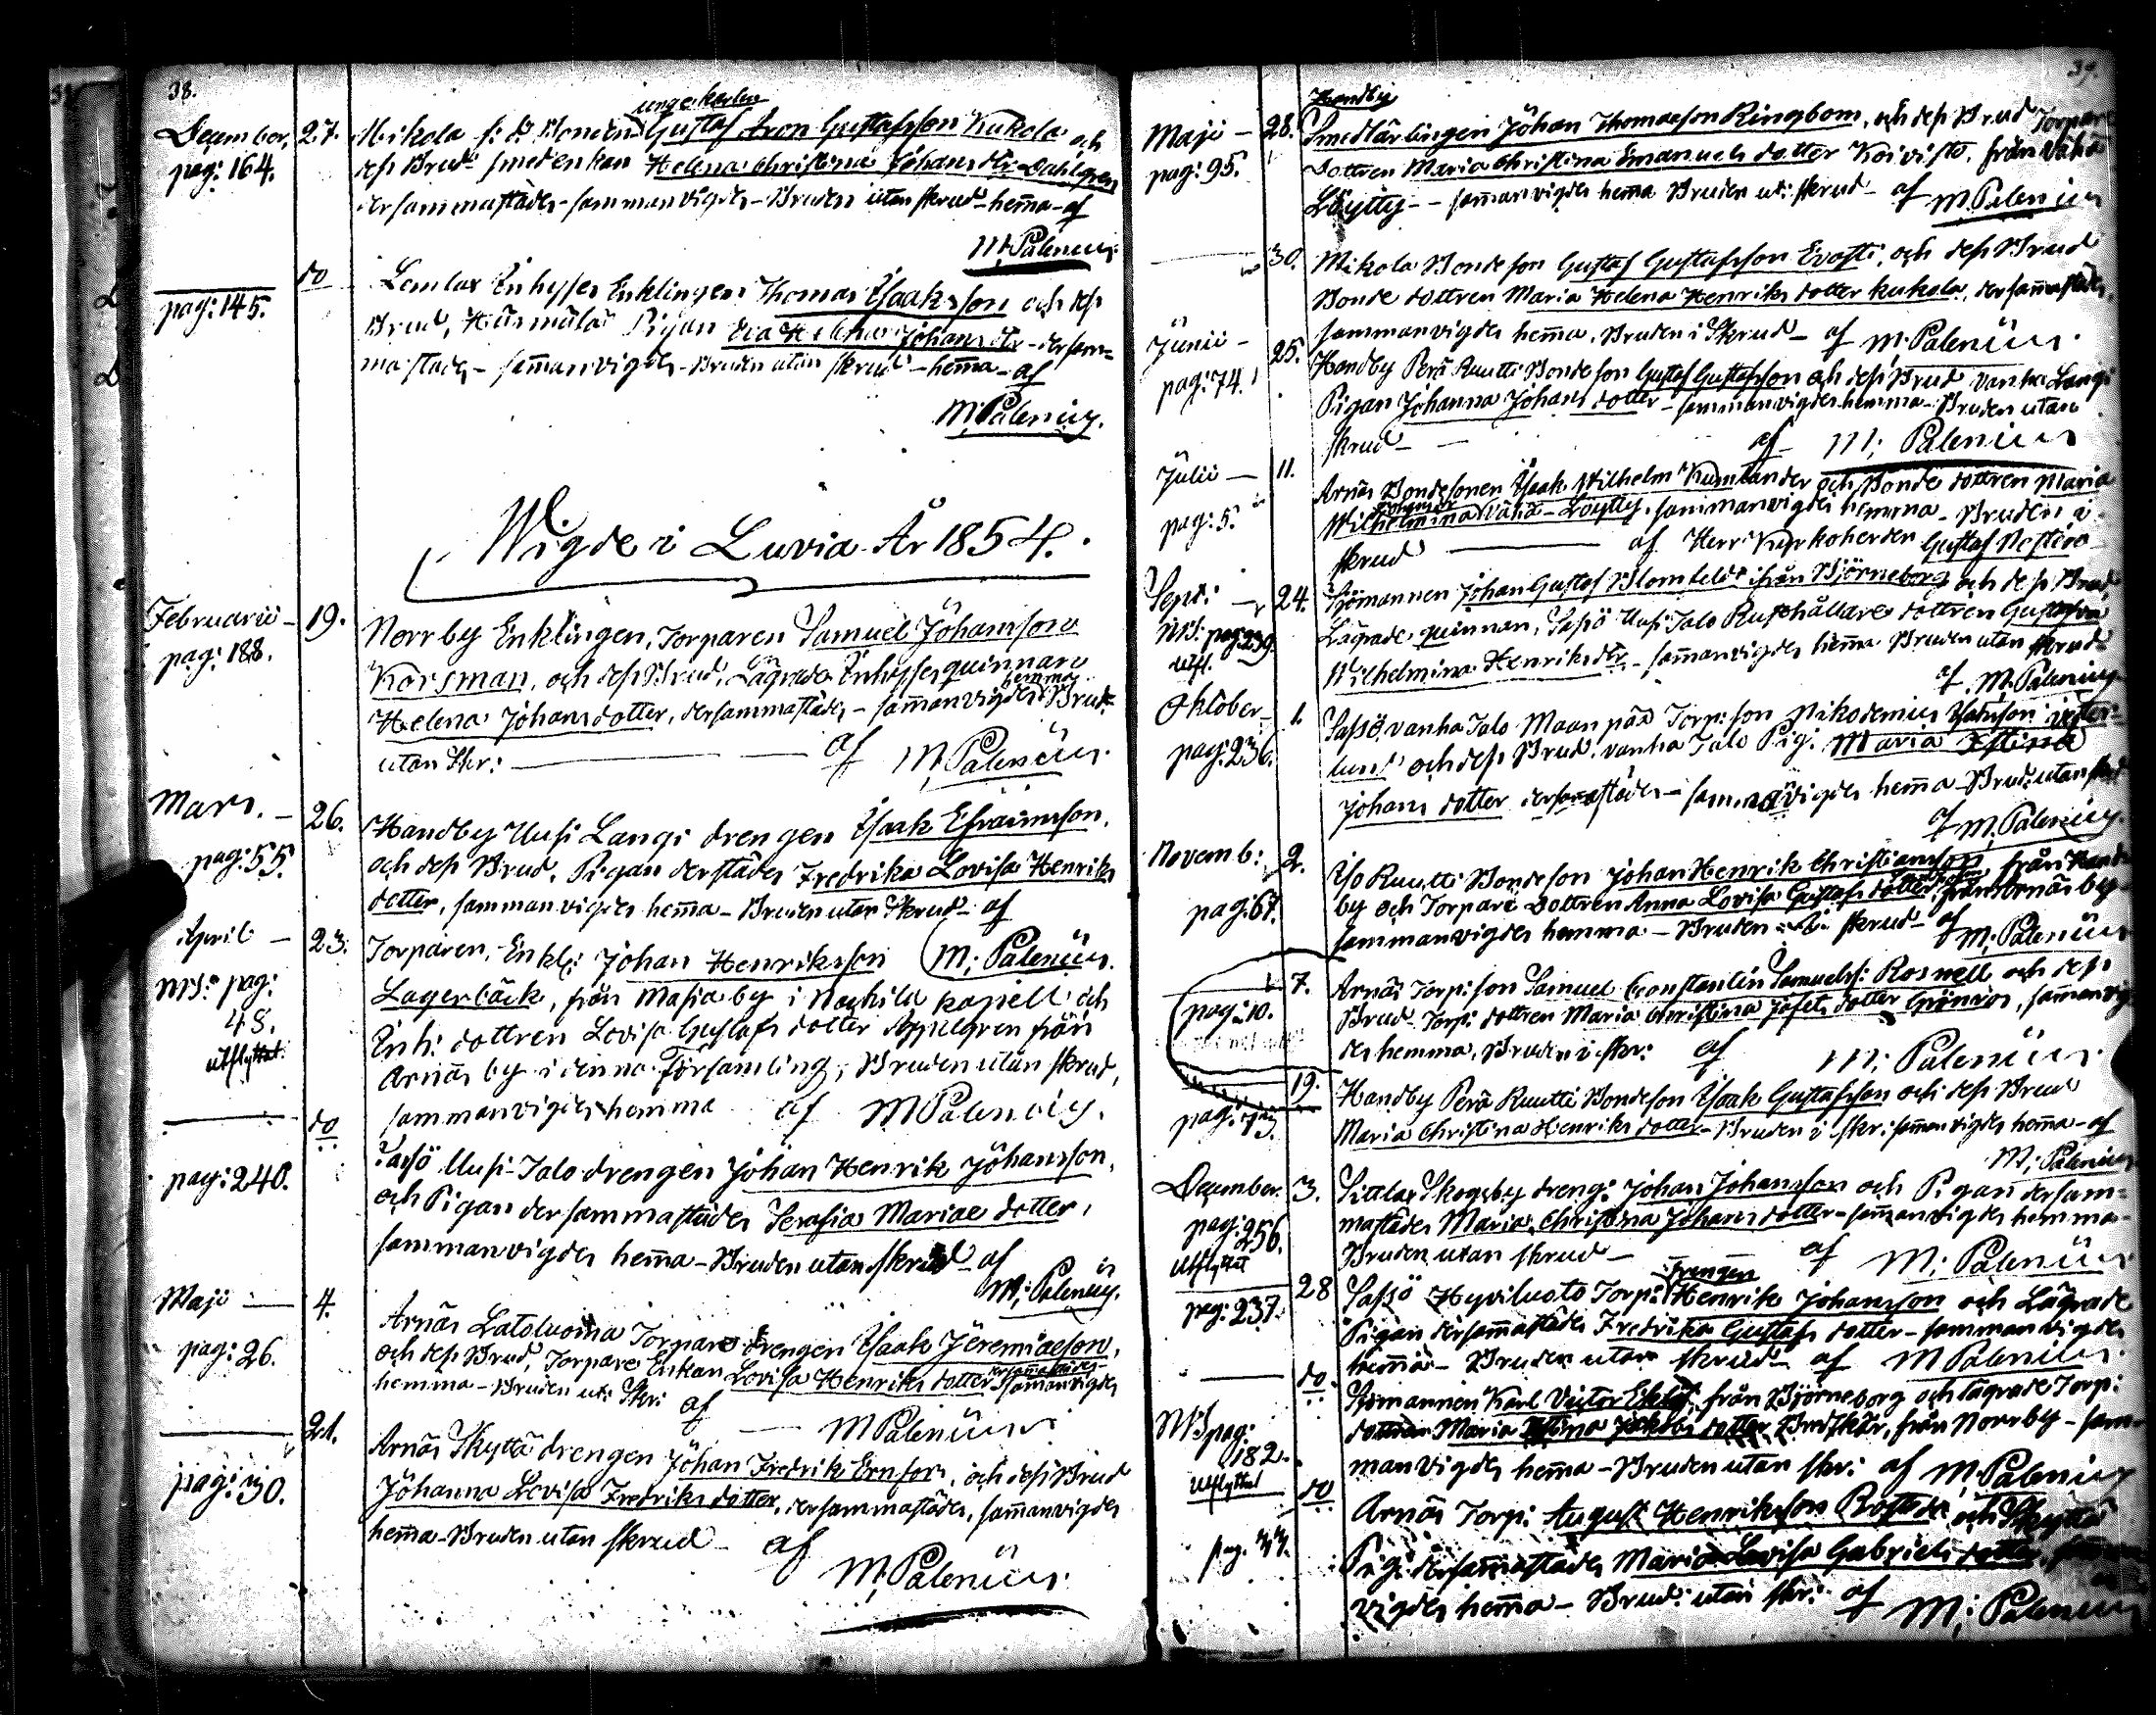 38.
December, 27. Mikola f: d: Bonden ungekarlen Gustaf Aron Gustafsson Kukola och
pag: 164. dess Brud smedenkan Helena Christina Johansdtr Dahlgren
dersammastädes - sammanvigdes - Bruden utan skrud - hema - af
M; Palenius.
do Lemlax Inhyses Enklingen Thomas Isaaksson och dess
pag: 145. Brud, Pigan Eva Helena Johansdtr - dersam=
mastädes - samanvigdes - Bruden utan skrud - hema - af
M; Palenius.
Wigde i Luvia År 1854.
Februarii - 19. Norrby Enklingen, Torparen Samuel Johansson
pag: 188. Korsman, och dess Brud, Lägrade Inhysesquinnan
Helena Johansdotter, dersammastädes - samanvigdes hemma Brud.
utan Skr: af M; Palenius.
Mars. - 26. Handby Uusi Langi drengen Isaak Efraimsson,
pag: 55. och dess Brud, Pigan derstädes Fredrika Lovisa Henriks
dotter, sammanvigdes hema - Bruden utan Skrud - af
M; Palenius.
April - 23. Torparen, Enkl: Johan Henriksson
NB: pag: Lagerbäck, från Masia by i Nackila kapell och
48. Inh: dottren Lovisa Gustafs dotter Appelgren från
utflyttat. Arnäs by i denna Församling, Bruden utan skrud,
sammanvigdes hemma af M Palenius.
do Sassö Uusi-Talo drengen Johan Henrik Johansson,
pag: 240. och Pigan dersammastädes Serafia Mariae dotter,
sammanvigdes hema - Bruden utan skrud af
M; Palenius.
Maji - 4. Arnäs Latoluoma Torpare drengen Isaak Jeremiaeson,
pag: 26. och dess Brud, Torpare Enkan Lovisa Henriks dotter dersammastädes - samanvigdes
hemma - Bruden ut: Skr: af M Palenius.
21. Arnäs Skyttä drengen Johan Fredrik Ernfors, och dess Brud
pag: 30. Johanna Lovisa Fredriks dotter, dersammastädes, samanvigdes
hema - Bruden utan skrud - af
M; Palenius.
39.
Handby
Maji - 28. Smedlärlingen Johan Thomasson Ringbom, och dess Brud Torpare
pag: 95. Dottren Maria Christina Emanuels dotter Koivisto, från Vähä
Löytty - - samanvigdes hema Bruden ut: skrud - af M; Palenius
30. Mikola Bondeson Gustaf Gustafsson Evasti, och dess Brud
Bonde dottren Maria Helena Henriks dotter Kukola, dersamastädes,
sammanvigdes hema, Bruden i Skrud - af M; Palenius.
Junii - 25. Handby Perä Ruutti Bondeson Gustaf Gustafsson och dess Brud Vanha Langi
pag: 74. Pigan Johanna Johans dotter - sammanvigdes hemma - Bruden utan
skrud - af M; Palenius
Julii - 11. Arnäs Bondesonen Isaak Wilhelm Kumlander och Bonde dottren Maria
pag: 5. Wilhelmina Vähä-Löytty, sammanvigdes hemma - Bruden i
skrud af Herr Kyrkoherden Gustaf
Sept: - 24. Sjömannen Johan Gustaf Blomfeldt ifrån Björneborg och dess Brud,
NB: pag: 239. Lägrade quinnan, Sassö Uusi-Talo Rusthållare dottren Gustafva
utfl. Wilhelmina Henriksdtr - samanvigdes hema Bruden utan skrud -
af M; Palenius.
Oktober - 1. Sassö, Vanha Talo Maanpää Torp: son Nikodemus
pag: 236. och dess Brud, Vanha Talo Pig: Maria Stina
Johans dotter dersamastädes - sammavigdes hema - Brud: utan skrud
af M; Palenius.
Novemb: 2. Iso Ruutti Bondeson Johan Henrik Christiansson, från Hand-
pag: 67. by och Torpare Dottren Anna Lovisa Gustafs dotter, från Arnäs by -
sammanvigdes hemma - Bruden i skrud - af M; Palenius
7. Arnäs Torp: son Samuel Constantin Samuelss: Rosnell och dess
pag: 10. Brud Torp: dottren Maria Christina Josefs dotter Grönroos, samanvig
des hemma, Bruden i skr: af M; Palenius.
19. Handby Perä Ruutti Bondeson Isaak Gustafsson och dess Brud
pag: 73. Maria Christina Henriks dotter - Bruden i skr: samanvigdes hema - af
M; Palenius
December 3. Sittlax Skogsby dreng: Johan Johansson och Pigan dersam=
pag: 256. mastädes Maria Christina Johans dotter - samanvigdes hemma -
utflyttat Bruden utan skrud - af M; Palenius
28 Sassö Hyviluoto Torp: drengen Henrik Johansson och Lägrade
pag: 237. Pigan dersamastädes Fredrika Gustafs dotter - sammanvigdes
hema - Bruden utan skrud - af M Palenius.
do. Sjömannen Karl Victor Eklöf, från Björneborg och lägrade Torp:
NB pag: dottren Maria Stina Jakobs dotter, från Norrby - sam-
182. manvigdes hema - Bruden utan skr: af M; Palenius
utflyttat
do Arnäs Torp: August Henriksson och Skyttä
pag. 44. Pig: dersamastädes Maria Lovisa Gabriels dotter
vigdes hema - Brud: utan skr: af M; Palenius